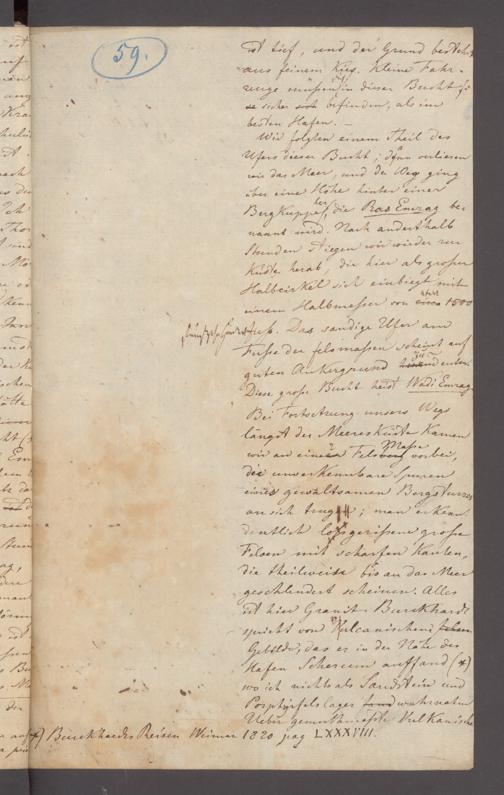 59.
ist tief, und der Grund besteht
aus feinem Kies. Kleine Fahr-
zeuge müssen in dieser Bucht so
sicher sich befinden, als im
besten Hafen. —
Wir folgten einem Theil des
Ufers dieser Bucht; dann verliesen
wir das Meer, und der Weg ging
über eine Höhe hinter einer
BergKuppe her, die Ras Emrag be-
nannt wird. Nach anderthalb
Stunden stiegen wir wieder zur
Küste herab, die hier als großer
Halbcirkel sich einbiegt mit
einem Halbmesser von etwa 1500
Fus. Das sandige Ufer am
Fusse der felsmassen scheint auf
guten Ankergrund hinzudeuten.
Diese große Bucht heist Wadi Emrag
Bei Fortsetzung unsers Wegs
längst der Meeresküste kamen
wir an einer Fels Masse vorbei,
die unverkennbare Spuren
eines gewaltsamen Bergsturzes
an sich trug; man erkan
deutlich losgerissene große
Felsen mit scharfen Kanten,
die theilweise bis an das Meer
geschleudert scheinen. Alles
ist hier Granit. Burckhardt
spricht von Vulcanischen
Gebilde, das er in der Nähe des
Hafen Scherum auffand (*)
wo ich nichts als Sandstein und
Porphyrfels lager wahrnahm
Vulkanische
*) Burckhardts Reisen Weimar 1820 pag LXXXVIII.